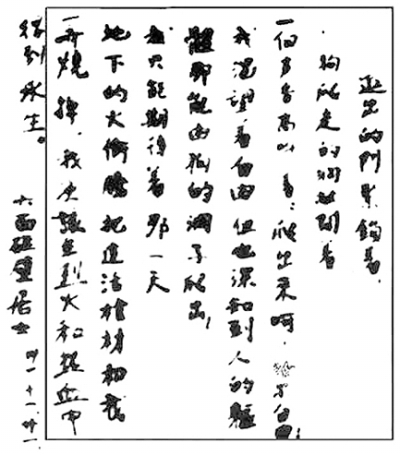 進出的門緊鎖着,
狗爬走的洞敞開着
一個聲音高叫着:爬出來呵,給尔自由!
我渴望着自由但也深知到人的軀
體那能由狗的洞子爬出!
我只能期待着那一天
地下的火衝騰把這活棺材和我
一齊燒掉,我應該在烈火和熱血中
得到永生。
六面碰壁居士 卅一 十一 廿一